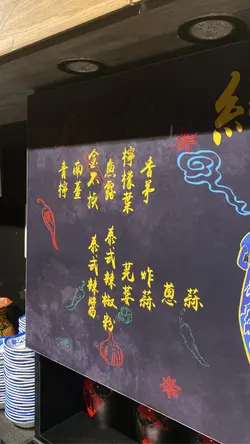 香茅
檸檬葉
魚露
金不換
南薑
青檸
蒜
蔥
炸蒜
芫荽
泰式辣椒粉
泰式辣醬